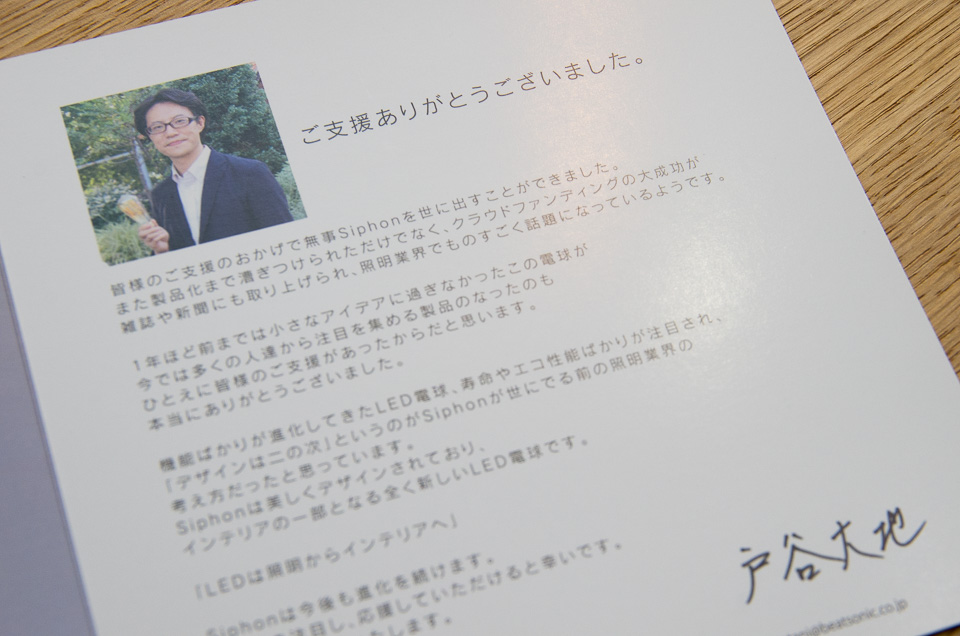 ご支援ありがとうございました。
皆様のご支援のおかげで無事Siphonを世に出すことができました。
また製品化まで漕ぎつけられただけでなく、クラウドファンディングの大成功が
雑誌や新聞にも取り上げられ、照明業界でものすごく話題になっているようです。
1年ほど前までは小さなアイデアに過ぎなかったこの電球が
今では多くの人達から注目を集める製品のなったのも
ひとえに皆様のご支援があったからだと思います。
本当にありがとうございました。
機能ばかりが進化してきたLED電球、寿命やエコ性能ばかりが注目され、
「デザインは二の次」というのがSiphonが世にでる前の照明業界の
考え方だったと思っています。
Siphonは美しくデザインされており、
インテリアの一部となる全く新しいLED電球です。
「LEDは照明からインテリアへ」
Siphonは今後も進化を続けます。
注目し、応援していただけると幸いです。
たします。
戸谷大地
@beatsonic.co.jp